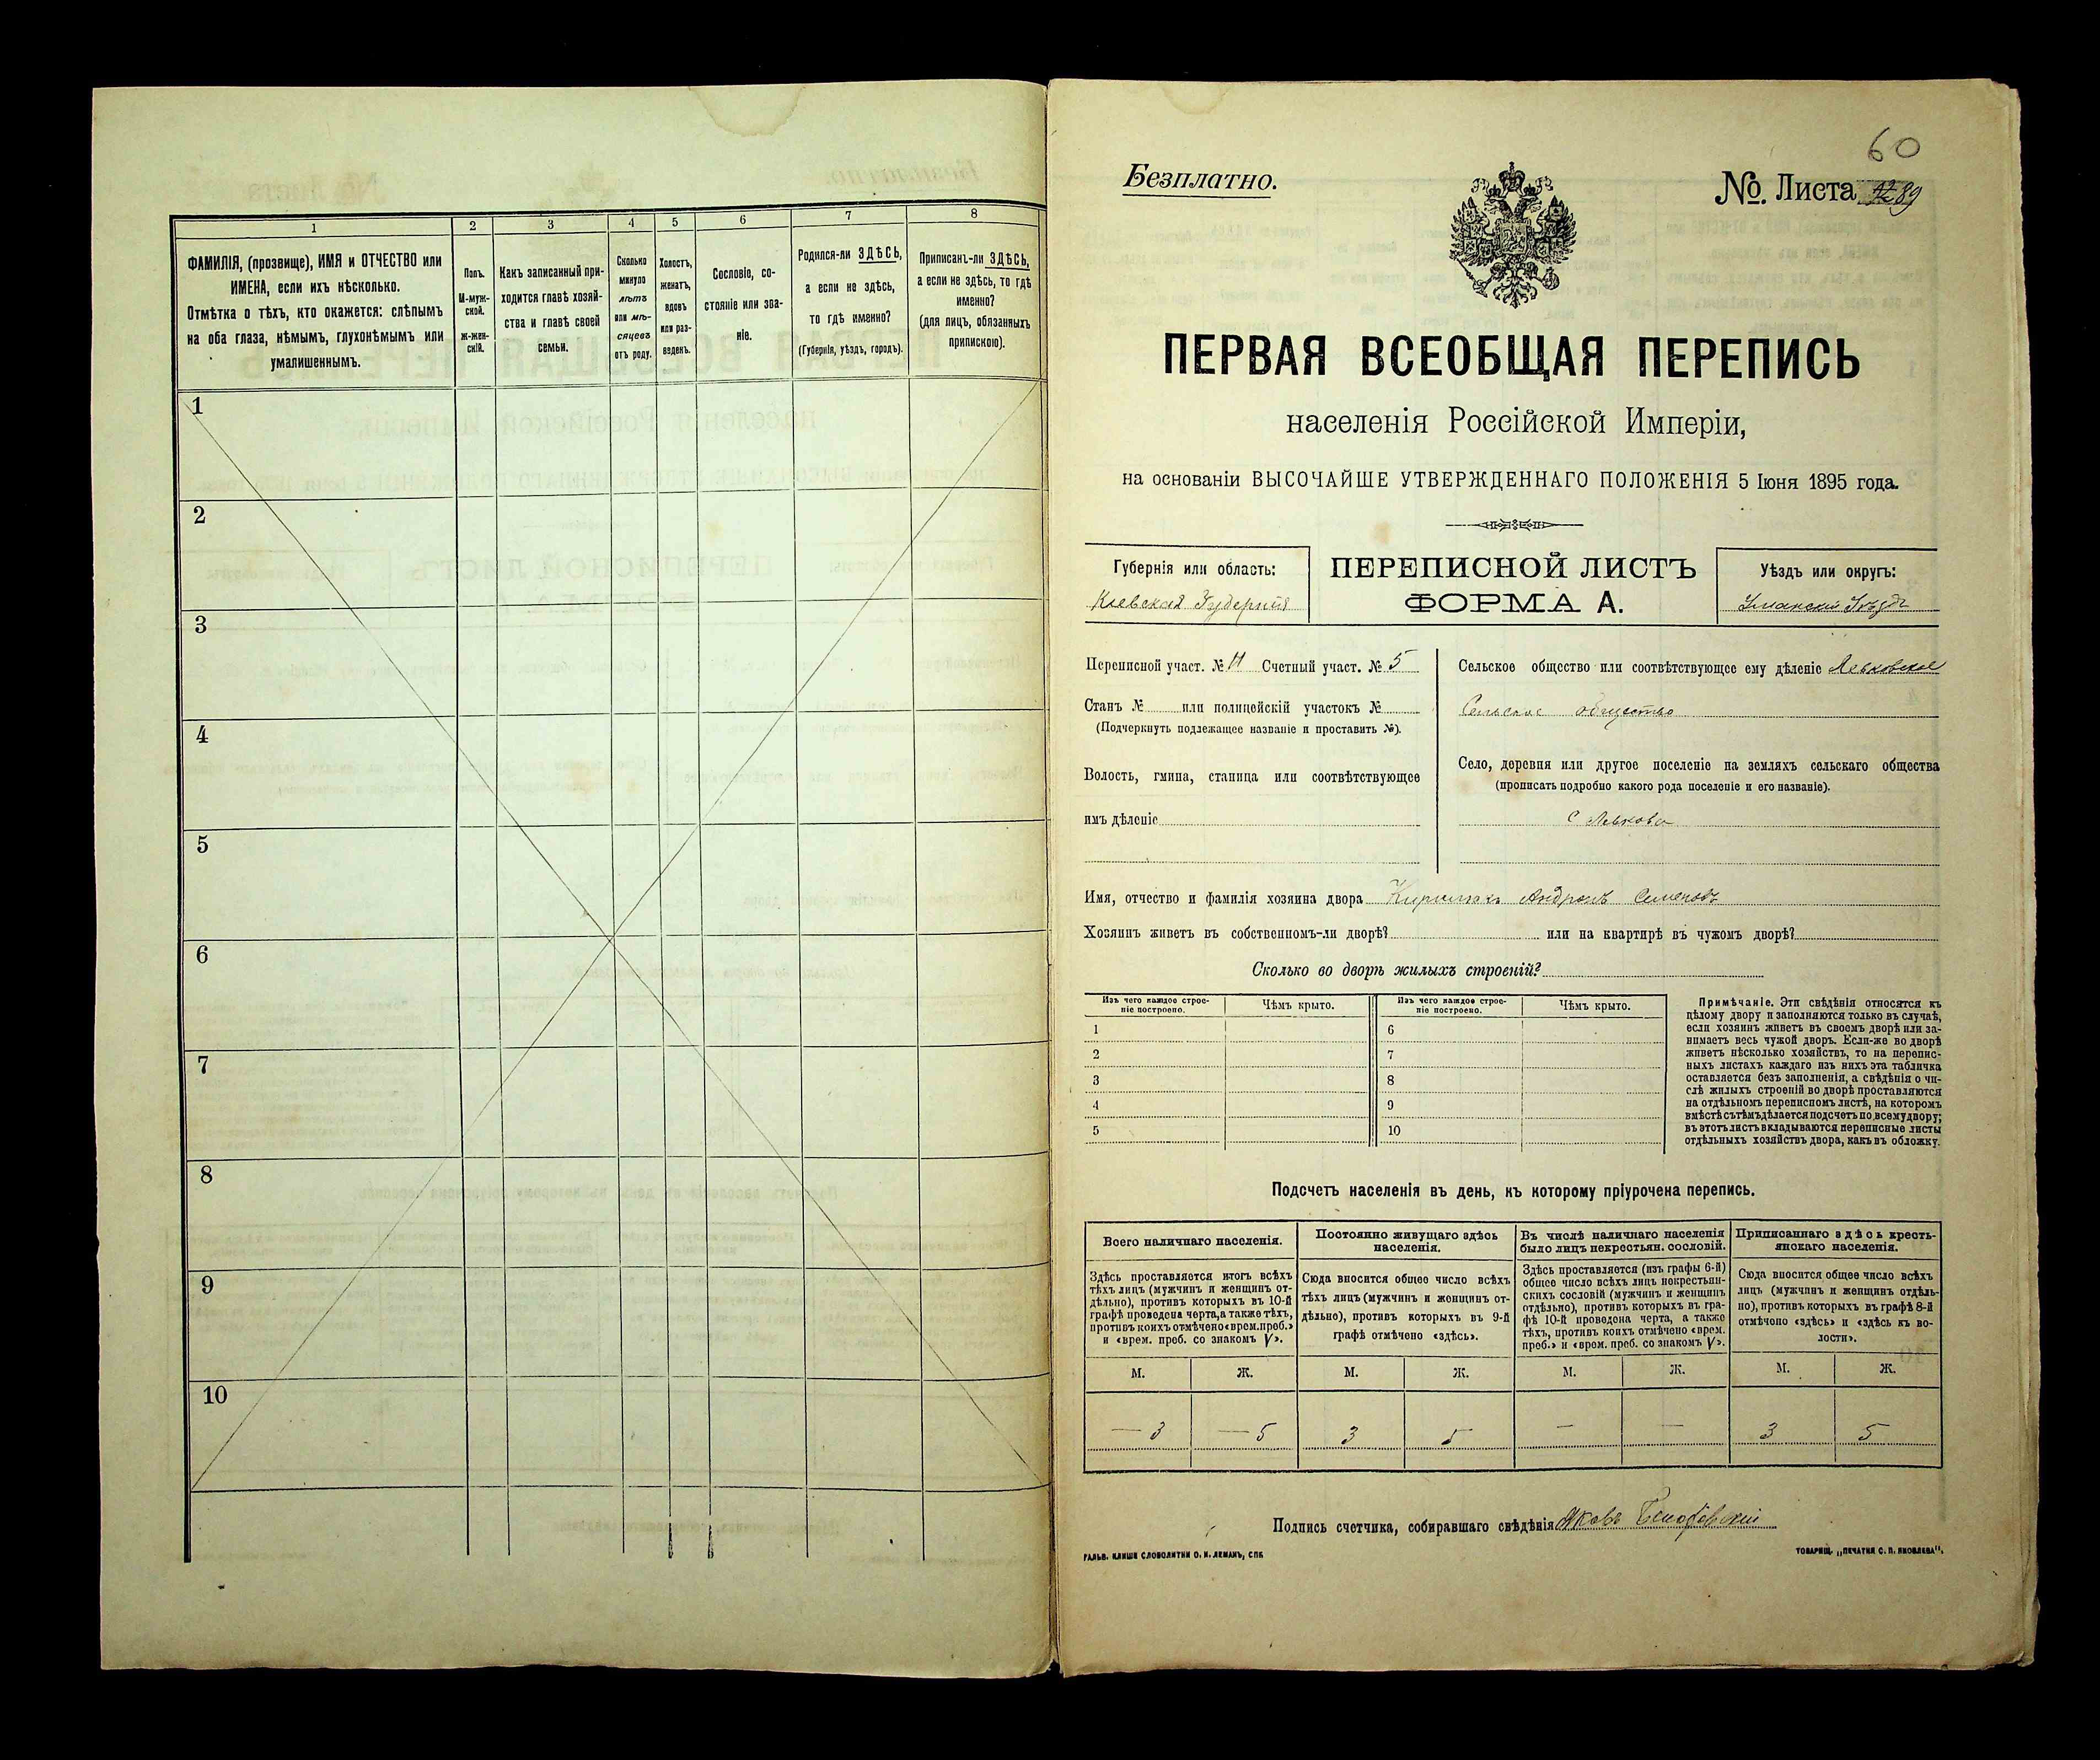 1
2
3
4
5
6
7
8
ФАМИЛІЯ, (прозвище), ИМЯ и ОТЧЕСТВО или
ИМЕНА, если ихъ нѣсколько.
Отмѣтка о тѣхъ, кто окажется: слѣпымъ
на оба глаза, нѣмымъ, глухонѣмымъ или
умалишеннымъ.
Полъ.
М-муж-
ской.
Ж-жен-
скій.
Какъ записанный при-
ходится главѣ хозяй-
ства и главѣ своей
семьи.
Сколько
минуло
лѣтъ
или мѣ-
сяцевъ
отъ роду.
Холостъ,
женатъ,
вдовъ
или раз-
веденъ.
Сословіе, со-
стояніе или зва-
ніе.
Родился-ли ЗДѢСЬ,
а если не здѣсь,
то гдѣ именно?
(Губернія, уѣздъ, городъ).
Приписанъ-ли ЗДѢСЬ,
а если не здѣсь, то гдѣ
именно?
(для лицъ, обязанныхъ
припискою).
1
2
3
4
5
6
7
8
9
10
60
Безплатно.
№. Листа 89
ПЕРВАЯ ВСЕОБЩАЯ ПЕРЕПИСЬ
населенія Россійской Имперіи,
на основаніи ВЫСОЧАЙШЕ УТВЕРЖДЕННАГО ПОЛОЖЕНІЯ 5 Іюня 1895 года.
Губернія или область:
Кіевская Губернія
ПЕРЕПИСНОЙ ЛИСТЪ
ФОРМА А.
Уѣздъ или округъ:
Уманскій Уѣздъ
Переписной участ. № 11 Счетный участ. № 5
Станъ № или полицейскій участокъ №
(Подчеркнуть подлежащее названіе и проставить №).
Волость, гмина, станица или соотвѣтствующее
имъ дѣленіе
Сельское общество или соотвѣтствующее ему дѣленіе Левковское
Сельское общество
Село, деревня или другое поселеніе на земляхъ сельскаго общества
(прописать подробно какого рода поселеніе и его названіе).
с Левковка
Имя, отчество и фамилія хозяина двора Андрей Семеновъ
Хозяинъ живетъ въ собственномъ-ли дворѣ? или на квартирѣ въ чужомъ дворѣ?
Сколько во дворѣ жилыхъ строеній?
Изъ чего каждое строе-
ніе построено.
Чѣмъ крыто.
Изъ чего каждое строе-
ніе построено.
Чѣмъ крыто.
1
2
3
4
5
6
7
8
9
10
Примѣчаніе. Эти свѣдѣнія относятся къ
цѣлому двору и заполняются только въ случаѣ,
если хозяинъ живетъ въ своемъ дворѣ или за-
нимаетъ весь чужой дворъ. Если-же во дворѣ
живетъ нѣсколько хозяйствъ, то на перепис-
ныхъ листахъ каждаго изъ нихъ эта табличка
оставляется безъ заполненія, а свѣдѣнія о чи-
слѣ жилыхъ строеній во дворѣ проставляются
на отдѣльномъ переписномъ листѣ, на которомъ
вмѣстѣ съ тѣмъ дѣлается подсчетъ по всему двору;
въ этотъ листъ вкладываются переписные листы
отдѣльныхъ хозяйствъ двора, какъ въ обложку.
Подсчетъ населенія въ день, къ которому пріурочена перепись.
Всего наличнаго населенія.
Постоянно живущаго здѣсь
населенія.
Въ числѣ наличнаго населенія
было лицъ некрестьян. сословій.
Приписаннаго здѣсь кресть-
янскаго населенія.
Здѣсь проставляется итогъ всѣхъ
тѣхъ лицъ (мужчинъ и женщинъ от-
дѣльно), противъ которыхъ въ 10-й
графѣ проведена черта, а также тѣхъ,
противъ коихъ отмѣчено «врем. преб.»
и «врем. преб. со знакомъ V».
Сюда вносится общее число всѣхъ
тѣхъ лицъ (мужчинъ и женщинъ от-
дѣльно), противъ которыхъ въ 9-й
графѣ отмѣчено «здѣсь».
Здѣсь проставляется (изъ графы 6-й)
общее число всѣхъ лицъ некрестьян-
скихъ сословій (мужчинъ и женщинъ
отдѣльно), противъ которыхъ въ гра-
фѣ 10-й проведена черта, а также
тѣхъ, противъ коихъ отмѣчено «врем.
преб.» и «врем. преб. со знакомъ V».
Сюда вносится общее число всѣхъ
лицъ (мужчинъ и женщинъ отдѣль-
но), противъ которыхъ въ графѣ 8-й
отмѣчено «здѣсь» и «здѣсь къ во-
лости».
М. Ж. М. Ж. М. Ж. М. Ж.
— 3 — 5 3 5 — — 3 5
Подпись счетчика, собиравшаго свѣдѣнія Яковъ
ГАЛЬВ. КЛИШЕ СЛОВОЛИТНИ О. И. ЛЕМАНЪ, СПБ
ТОВАРИЩ. „ПЕЧАТНЯ С. П. ЯКОВЛЕВА".